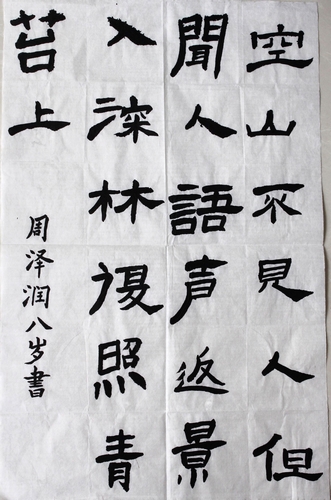 空山不見人但
聞人語声返景
入深林復照青
苔上
周泽润八岁書